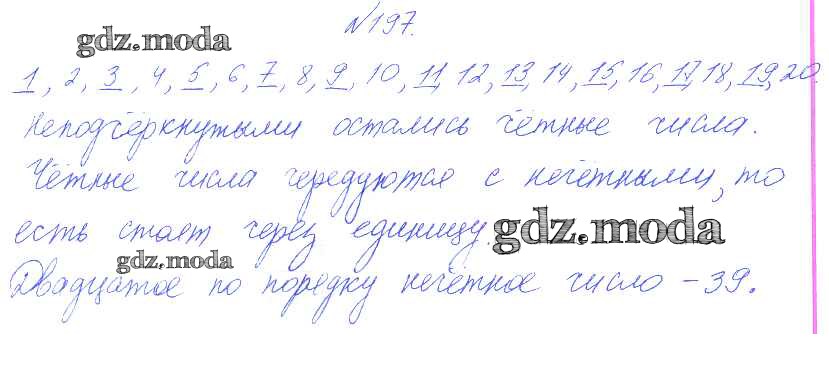 №197.
gdz.moda
1, 2, 3, 4, 5, 6, 7, 8, 9, 10, 11, 12, 13, 14, 15, 16, 17, 18, 19, 20.
Неподчёркнутыми остались чётные числа.
Чётные числа чередуются с нечётными, то
есть стоят через единицу.
gdz.moda
gdz.moda
Двадцатое по порядку нечётное число – 39.